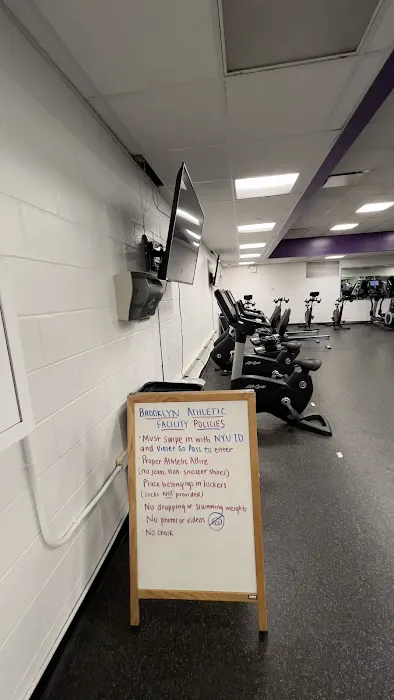 BROOKLYN ATHLETIC
FACILITY POLICIES
· Must swipe in with NYU ID
and Violet Go Pass to enter
· Proper Athletic Attire
(no jeans, non-sneaker shoes)
· Place belongings in lockers
(locks NOT provided)
· No dropping or slamming weights
· No photos or videos
· No chalk